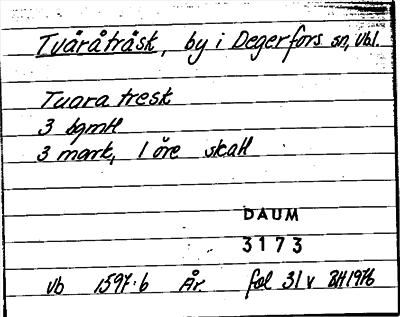 Tväråträsk, by i Degerfors sn, Vbl.
Tuara tresk
3 bgmH
3 mark, 1 öre skatt
DAUM
3173
Vb 1597:6 År. fol 31 v BH 1976